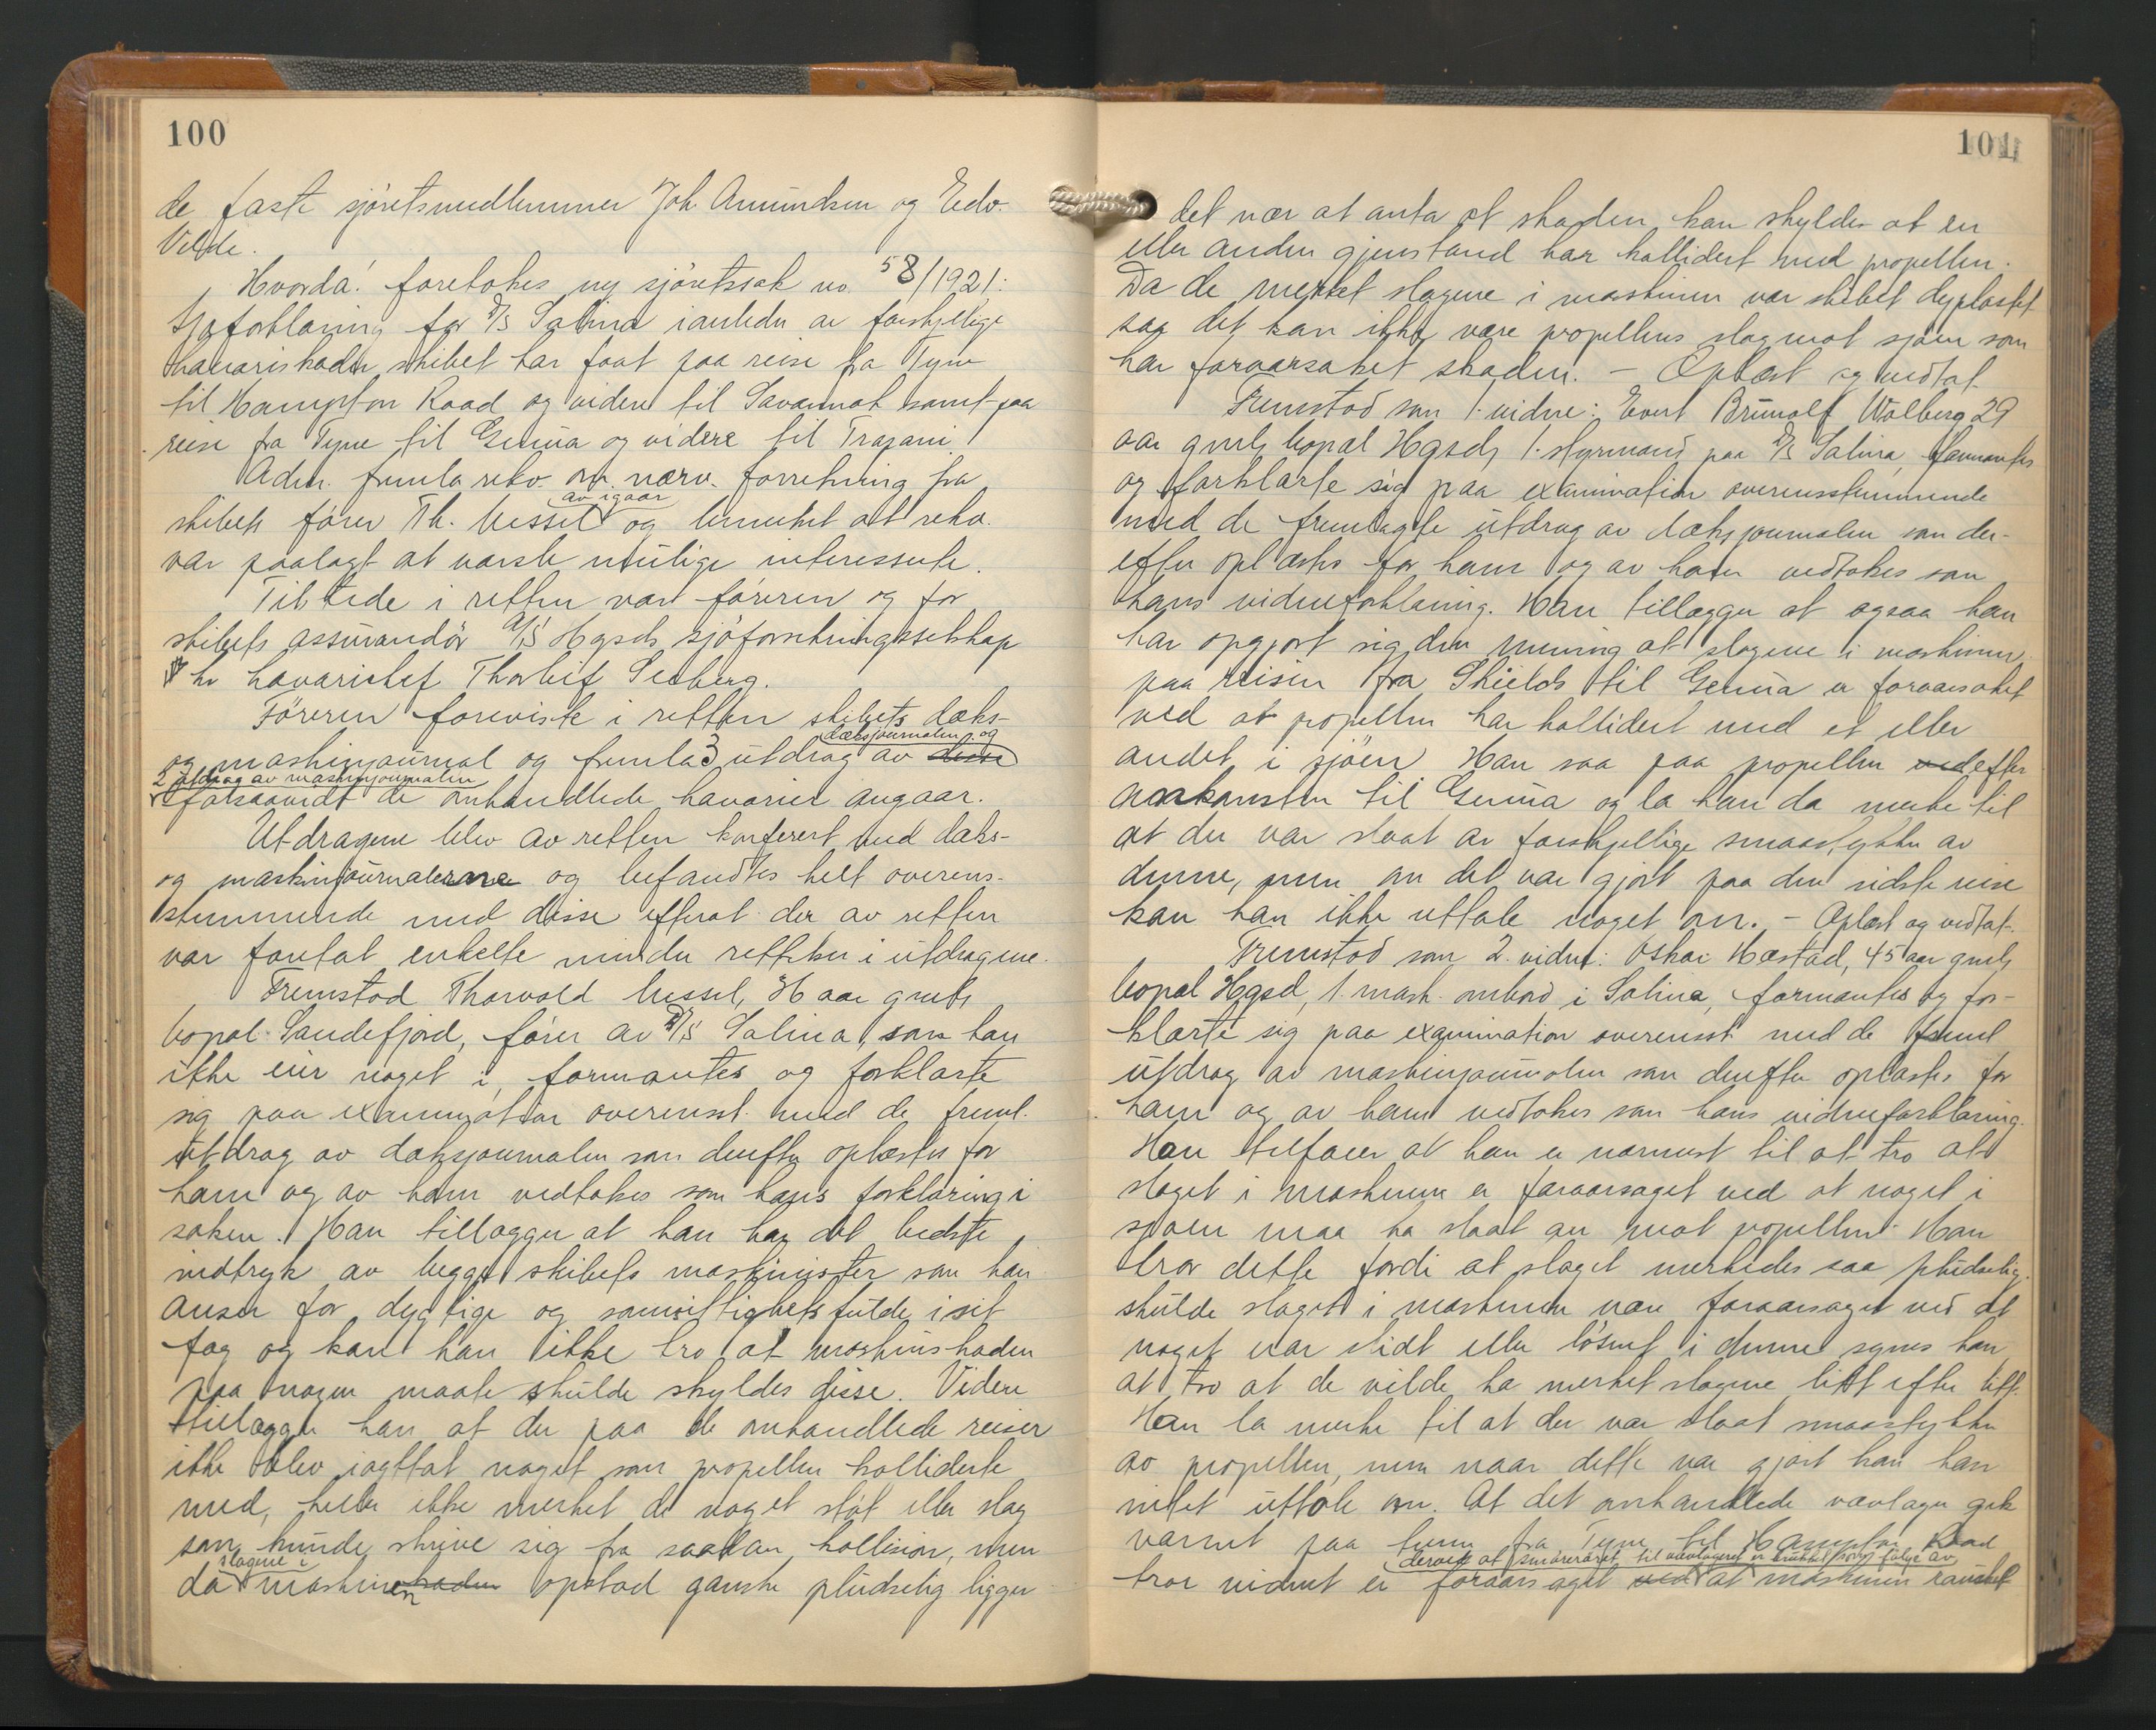 100
de faste sjöretsmedlemmer Joh. Amundsen og Edv.
Velde.
Hvorda! foretokes ny sjöretssak no. 58/1921:
Sjøforklaring for D/S Salina i anledn av forskjellige
havariskader skibet har faat paa reise fra Tyne
til Hampton Road og videre til Savannah samt paa
reise fra Tyne til Genua og videre til Trapani.
Adm. fremla rekv. om nærv. forretning fra
skibets förer Th. Vessel av igaar og bemerket at rekv.
var paalagt at varsle mulige interessente.
Tilstede i retten var föreren og for
skibets assurandör A/S Hgsds sjöforsikringsselskap
hr havarichef Thorleif Seeberg.
Föreren foreviste i retten skibets dæks-
og maskinjournal og fremla 3 utdrag av dæksjournalen og
2 utdrag av maskinjournalen
forsaavidt de omhandlede havarier angaar.
Utdragene blev av retten konferert med dæks-
og maskinjournalerne og befandtes helt overens-
stemmende med disse efterat der av retten
var foretat enkelte mindre rettelser i utdragene.
Fremstod Thorvald Vessel, aar gmls
bopæl Sandefjord, förer av D/S Salina, som han
ikke eier noget i, formantes og forklarte
sig paa examination overensst. med de freml.
utdrag av dæksjournalen som derefter oplæstes for
ham og av ham vedtokes som hans forklaring i
saken. Han tillægger at han har det bedste
indtryk av begge skibets maskinister som han
anser for dygtige og samvittighetsfulde i sit
fag og kan han ikke tro at maskinskaden
paa nogen maate skulde skyldes disse. Videre
tillægger han at der paa de omhandlede reiser
ikke blev iagttat noget som propellen kolliderte
med, heller ikke merket de noget stöt eller slag
som kunde skrive sig fra saadan kollision, men
da slagene i maskinen opstod ganske pludselig ligger
101
det nær at anta at skaden kan skyldes at en
eller anden gjenstand har kollidert med propellen.
Da de merket slagene i maskinen var skibet dyplastet
saa det kan ikke være propellens slag mot sjöen som
har foraarsaket skaden. - Oplæst og vedtat.
Fremstod som 1. vidne: Evert Brunolf Wølberg 29
aar gmls bopæl Hgsd, 1. styrmand paa D/S Salina, formantes
og forklarte sig paa examination overensstemmende
med de fremlagte utdrag av dæksjournalen som der-
efter oplæstes for ham og av ham vedtokes som
hans vidneforklaring. Han tillægger at ogsaa han
har opgjort sig den mening at slagene i maskinen
paa reisen fra Shields til Genua er foraarsaket
ved at propellen har kollidert med et eller
andet i sjöen. Han saa paa propellen efter
ankomsten til Genua og la han da merke til
at der var slaat av forskjellige smaastykker av
denne, men om det var gjort paa den sidste reise
kan han ikke uttale noget om. - Oplæst og vedtat.
Fremstod som 2. vidne: Oskar Hæstad, 45 aar gmls
bopæl Hgsd, 1. mask. ombord i Salina, formantes og for-
klarte sig paa examination overensst. med de freml
utdrag av maskinjournalen som derefter oplæstes for
ham og av ham vedtokes som hans vidneforklaring.
Han tilføier at han er nærmest til at tro at
slaget i maskinen er foraarsaget ved at noget i
sjøen maa ha slaat an mot propellen. Han
tror dette fordi at slaget merkedes saa pludselig.
skulde slaget i maskinen være foraarsaget ved at
noget var slidt eller lösnet i denne synes han
at tro at de vilde ha merket slagene litt efter litt.
Han la merke til at der var slaat smaastykker
av propellen, men naar dette var gjort kan han
intet uttale om. At det omhandlede vævlager gik
varmt paa turen fra Tyne til Hampton Road
tror vidnet er foraarsaget derved at smöreröret til vævlageret er brukket som følge av at maskinen rauset